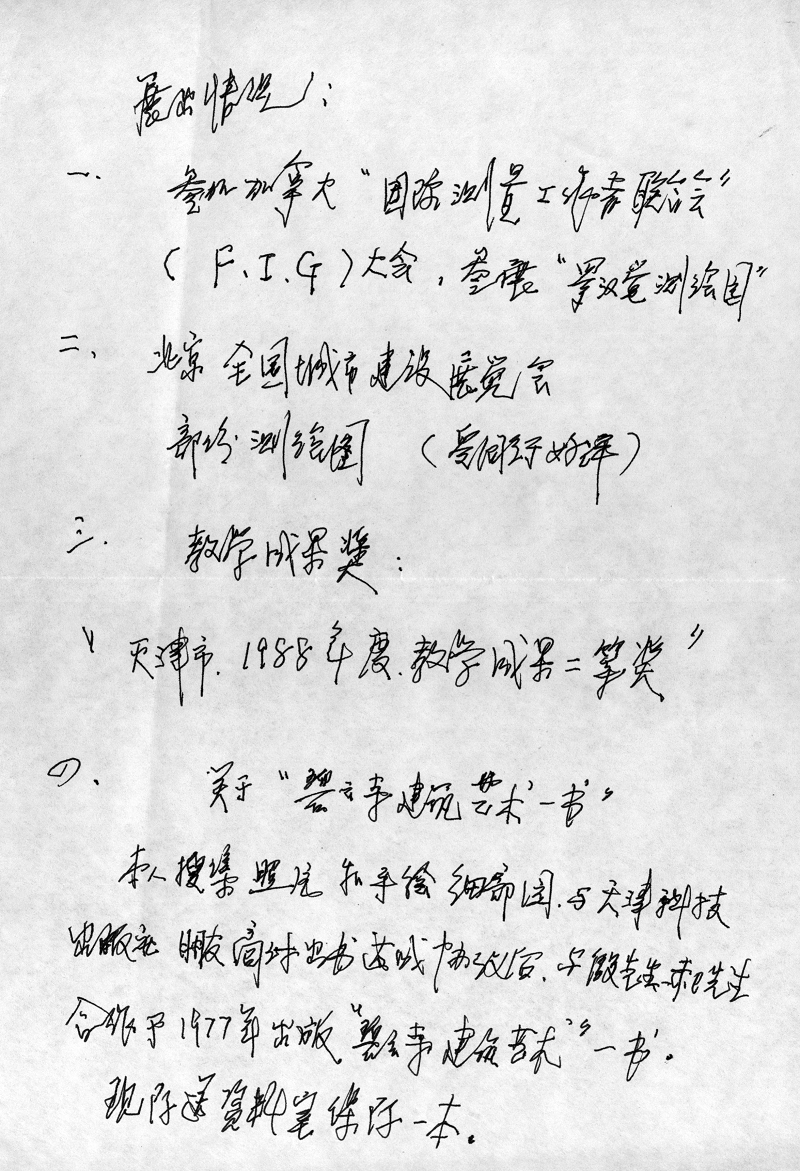 展出情况：
一、参加加拿大“国际测量工作者联合会”
（F.I.G）大会，参展“ 测绘图”
二、北京全国城市建设展览会
部份测绘图（受到 好评）
三、教学成果奖：
“天津市.1988年度.教学成果二等奖”
四、关于“碧云寺建筑艺术一书”
本人搜集照片和手绘细部图.与天津科技
出版社 商讨出书达成协议后.与 先生
合作于1977年出版“碧云寺建筑艺术”一书。
现 送资料室保 一本。